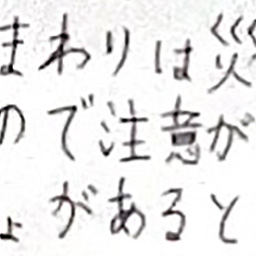 まわりは災
ので注意が
ょがあると